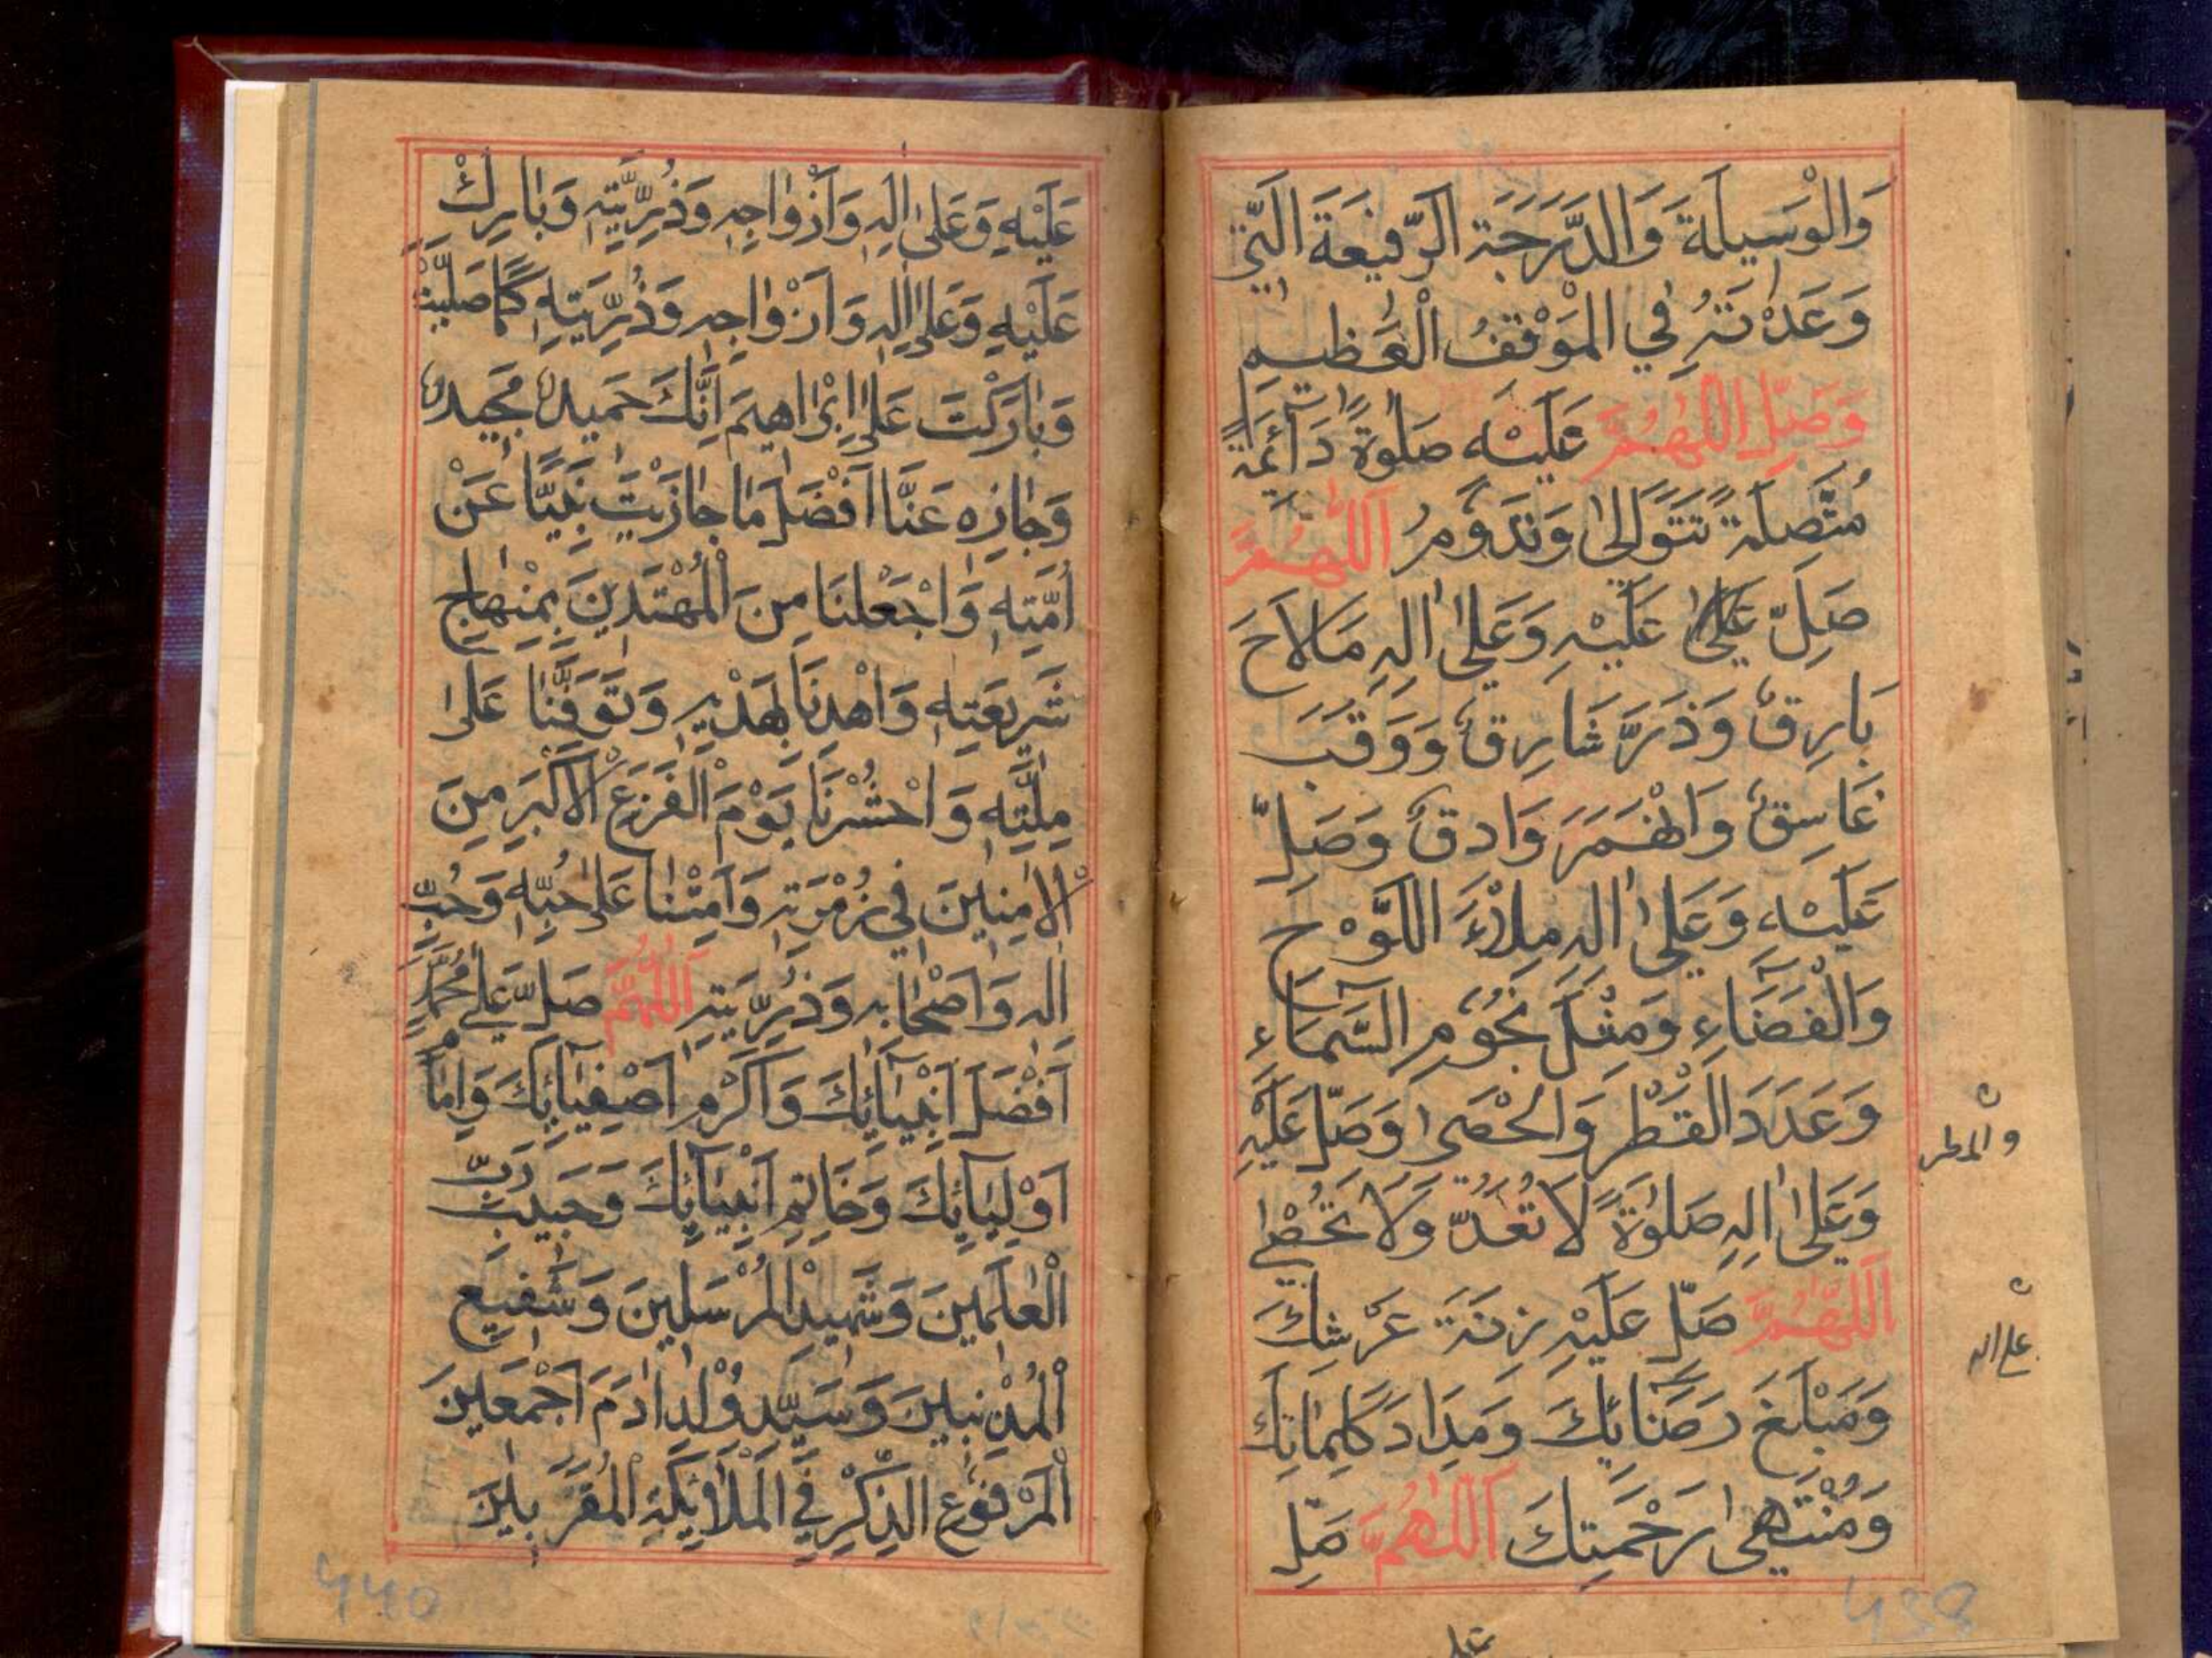 وَالْوَسِيلَةَ وَالدَّرَجَةَ الرَّفِيعَةَ الَّتِي
وَعَدْتَهُ فِي الْمَوْقِفُ الْعَظِيم
وَصَلِّ اللّٰهُمَّ عَلَيْهِ صَلٰوةً دَآئِمَةً
مُتَّصِلَةً تَتَوَالىٰ وَتَدُومُ اَللّٰهُمَّ
صَلِّ عَلَيْهِ وَعَلىٰ اٰلِهِ مَا لَاحَ
بَارِقٌ وَذَرَّ شَارِقٌ وَوَقَبَ
غَاسِقٌ وَانْهَمَرَ وَادِقٌ وَصَلِّ
عَلَيْهِ وَعَلىٰ اٰلِهِ مِلْأَ اللَّوْحِ
وَالْفَضَآءِ وَمِثْلَ نُجُومِ السَّمَآءِ
وَعَدَدَ الْقَطْرِ وَالْحَصىٰ وَصَلِّ عَلَيْهِ
والمطر
وَعَلىٰ اٰلِهِ صَلٰوةً لَا تُعَدُّ وَلَا تُحْصٰى
اَللّٰهُمَّ صَلِّ عَلَيْهِ زِنَةَ عَرْشِكَ
على اله
وَمَبْلَغَ رِضَائِكَ وَمِدَادَ كَلِمَاتِكَ
وَمُنْتَهىٰ رَحْمَتِكَ اَللّٰهُمَّ صَلِّ
439
عَلَيْهِ وَعَلىٰ اٰلِهِ وَاَزْوَاجِهِ وَذُرِّيَّتِهِ وَبَارِكْ
عَلَيْهِ وَعَلىٰ اٰلِهِ وَاَزْوَاجِهِ وَذُرِّيَّتِهِ كَمَا صَلَّيْتَ
وَبَارَكْتَ عَلىٰ اِبْرَاهِيمَ اِنَّكَ حَمِيدٌ مَجِيدٌ
وَجَازِهِ عَنَّا اَفْضَلَ مَا جَازَيْتَ نَبِيًّا عَنْ
اُمَّتِهِ وَاجْعَلْنَا مِنَ الْمُهْتَدِينَ بِمِنْهَاجِ
شَرِيعَتِهِ وَاهْدِنَا بِهَدْيِهِ وَتَوَفَّنَا عَلىٰ
مِلَّتِهِ وَاحْشُرْنَا يَوْمَ الْفَزَعِ الْاَكْبَرِ مِنَ
الْاٰمِنِينَ فِي زُمْرَتِهِ وَاَمِتْنَا عَلىٰ حُبِّهِ وَحُبِّ
اٰلِهِ وَاَصْحَابِهِ وَذُرِّيَّتِهِ اَللّٰهُمَّ صَلِّ عَلىٰ مُحَمَّدٍ
اَفْضَلِ اَنْبِيَآئِكَ وَاَكْرَمِ اَصْفِيَآئِكَ وَاِمَامِ
اَوْلِيَآئِكَ وَخَاتِمِ اَنْبِيَآئِكَ وَحَبِيبِ رَبِّ
الْعٰلَمِينَ وَشَهِيدِ الْمُرْسَلِينَ وَشَفِيعِ
الْمُذْنِبِينَ وَسَيِّدِ وُلْدِ اٰدَمَ اَجْمَعِينَ
الْمَرْفُوعِ الذِّكْرِ فِي الْمَلٰٓئِكَةِ الْمُقَرَّبِينَ
440